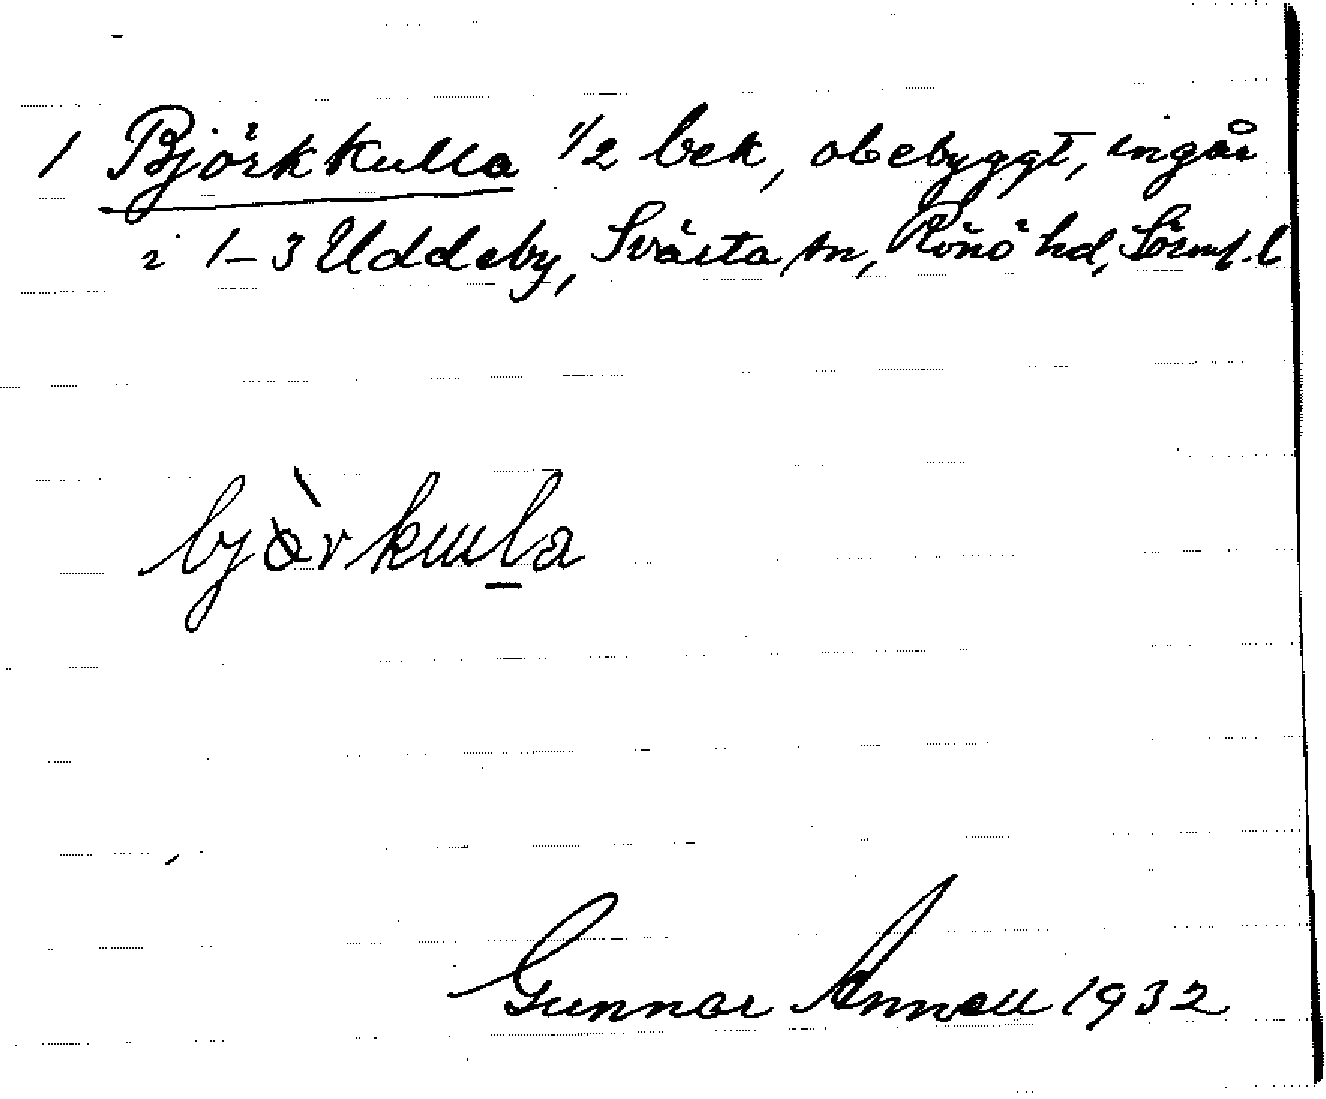 1 Björkkulla 1/2 bek, obebyggt, ingår
i 1-3 Uddeby, Svärta sn, Rönö hd, Sörml. l
bjòrkula
Gunnar Annell 1932